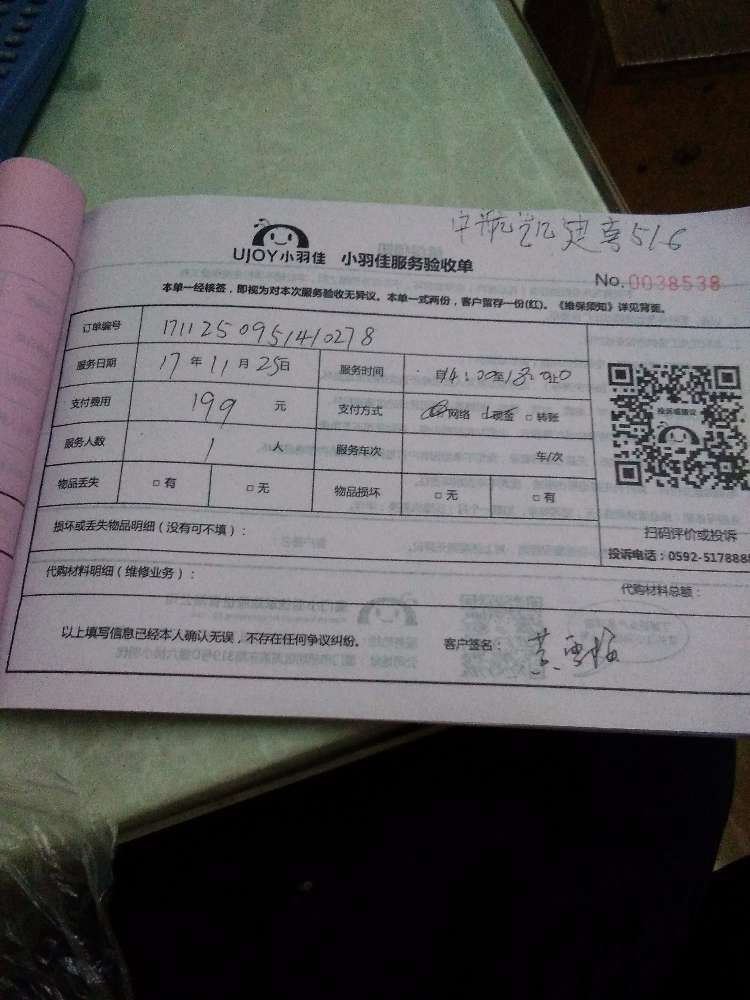 中航 建 516
UJOY小羽佳 小羽佳服务验收单
No.0038538
本单一经核签，即视为对本次服务验收无异议。本单一式两份，客户留存一份(红)。《维保须知》详见背面。
订单编号 1711250951410278
服务日期 17 年 11 月 25日 服务时间 自14:00至18:00止
支付费用 199 元 支付方式 网络 现金 □ 转账
服务人数 1 人 服务车次 车/次
物品丢失 □ 有 □ 无 物品损坏 □ 无 □ 有
投诉或建议
损坏或丢失物品明细（没有可不填）：
扫码评价或投诉
投诉电话：0592-5178888
代购材料明细（维修业务）：
代购材料总额：
以上填写信息已经本人确认无误，不存在任何争议纠纷。 客户签名： 黄雪梅